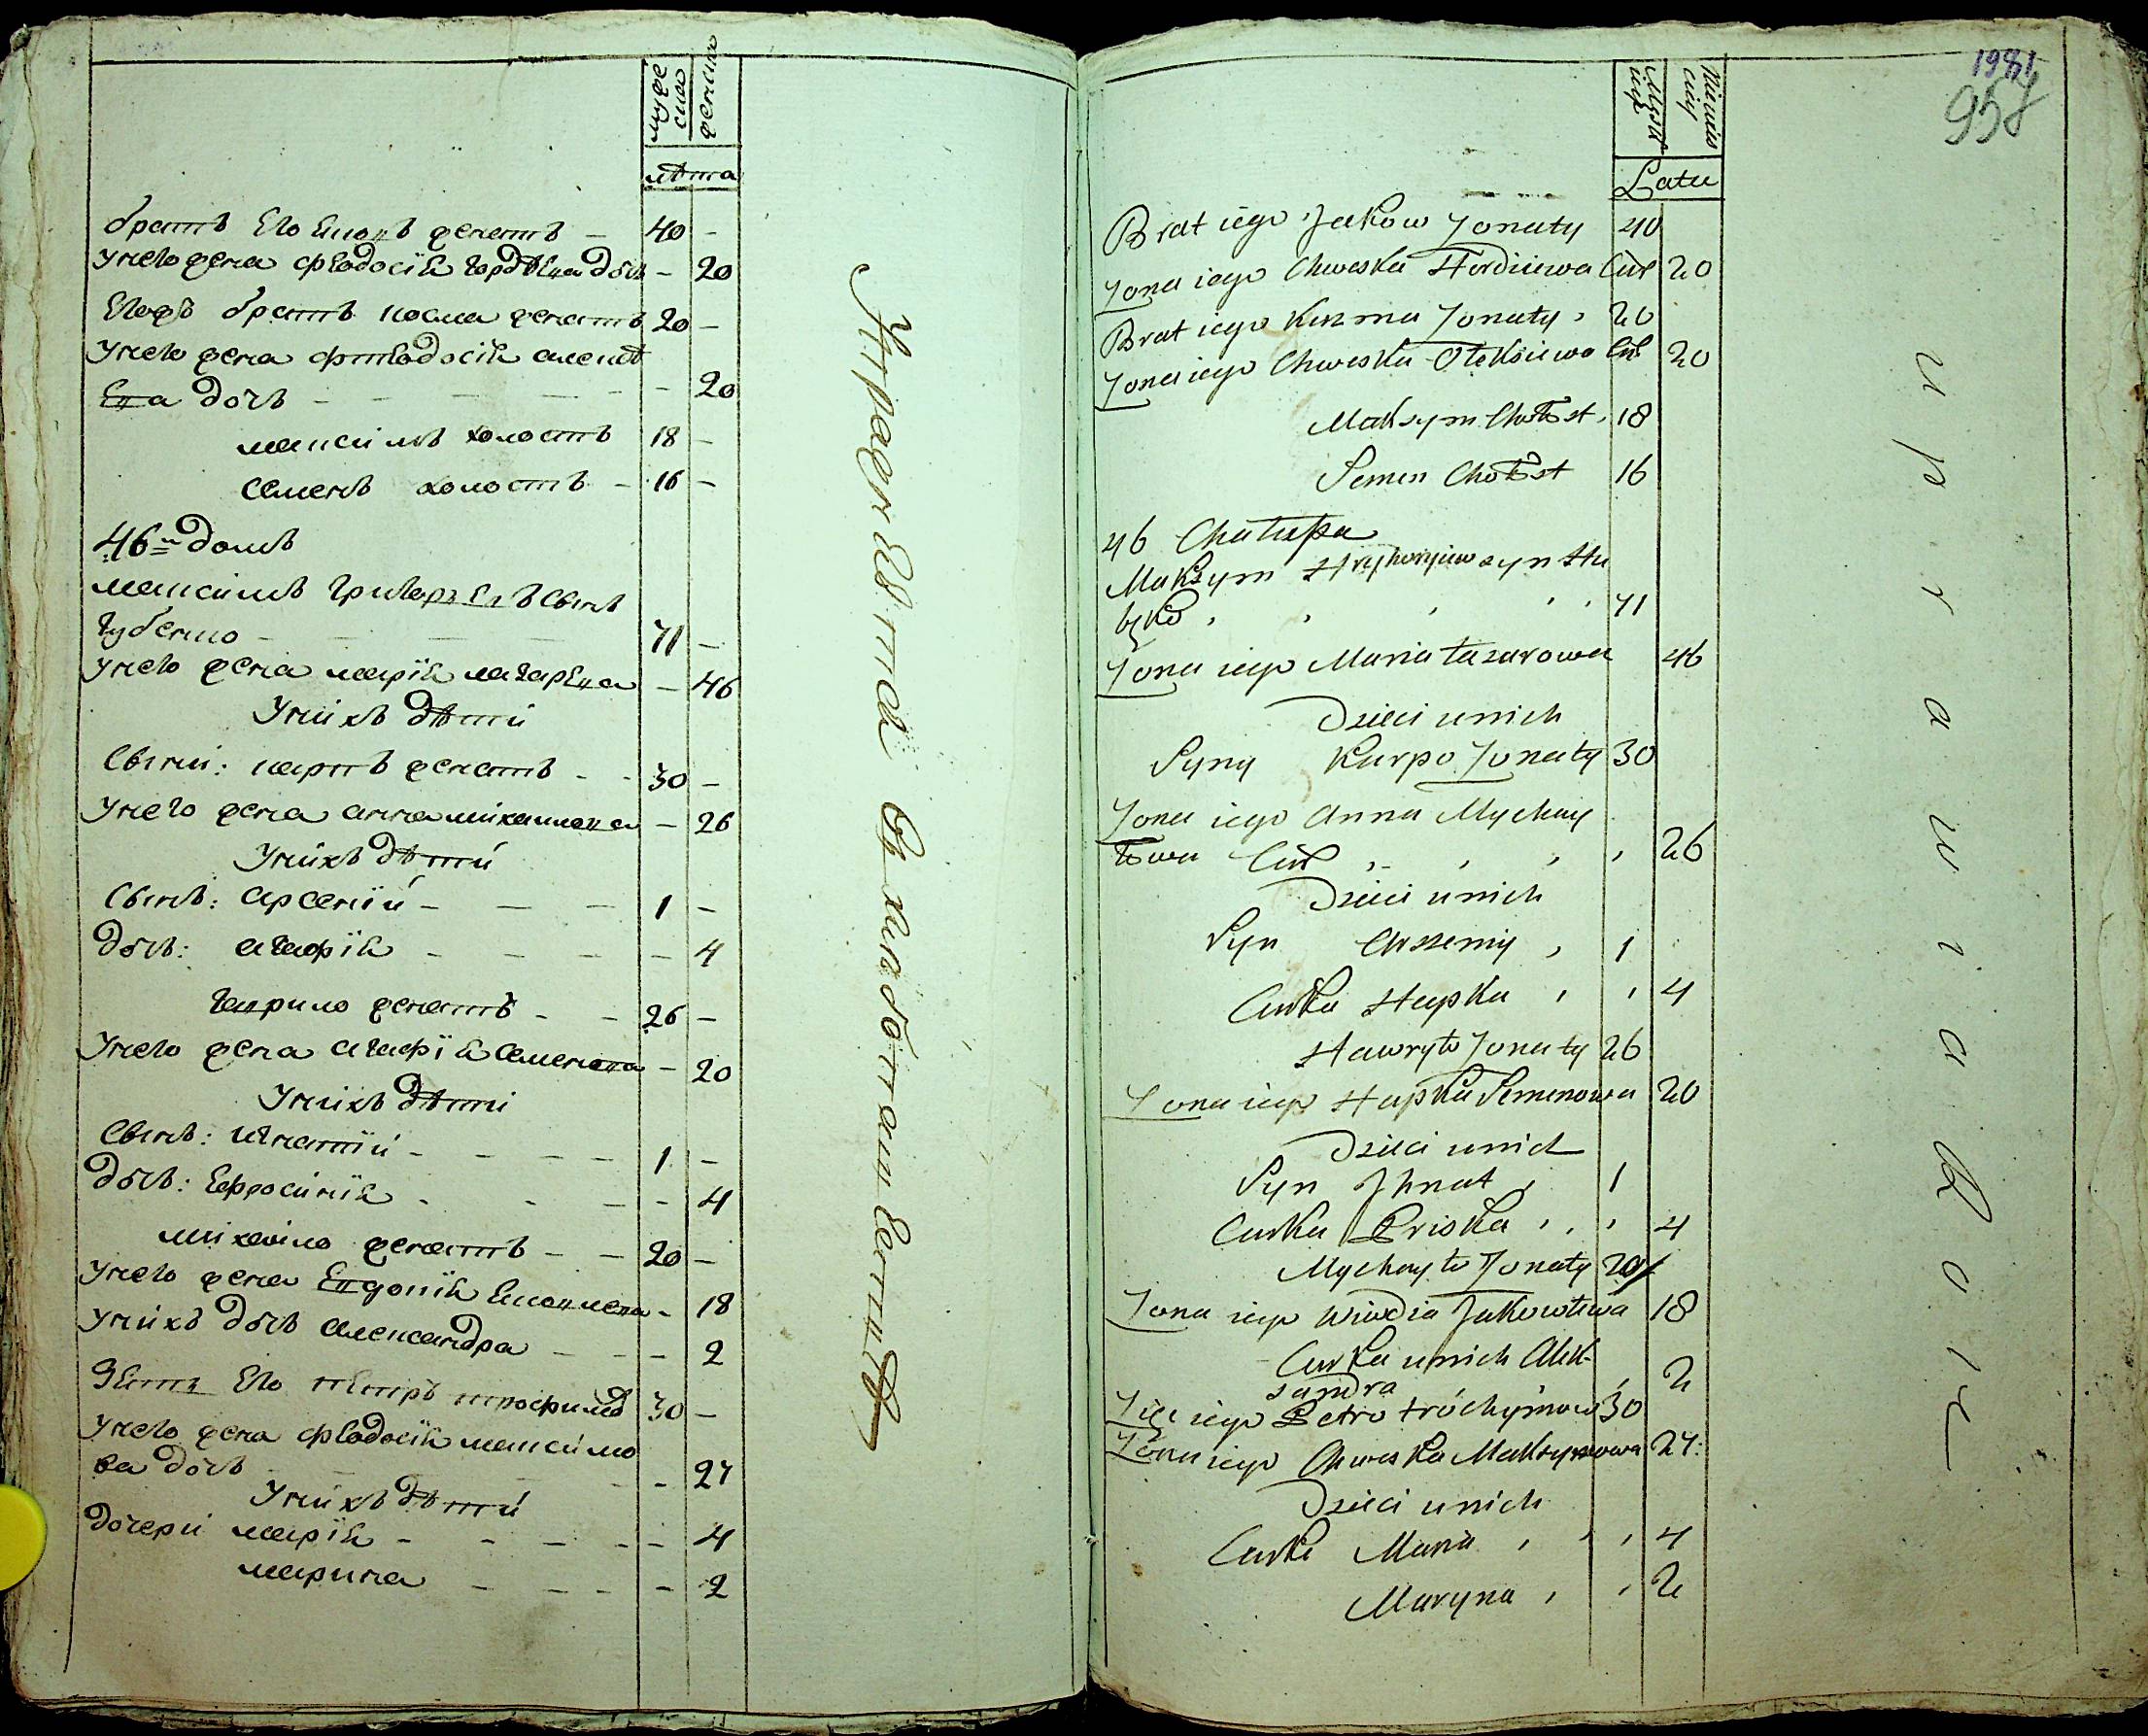 муже
ска
женска
лѣта
братъ Его Яковъ женатъ - 40 -
Унего жена феодосия гордѣева дочь - 20
Егожъ братъ косма женатъ 20 -
Унего жена феодосия алексѣ
Ева дочь - - - - - 20
максимъ холостъ 18 -
Семенъ холостъ - 16 -
46й домъ
максимъ григорьевъ Сынъ
губенко - - - 71 -
Унего жена мария лазарева - 46
Унихъ дѣти
Сыни: карпъ женатъ - - 30 -
Унего жена анна михаилова - 26
Унихъ дѣти
Сынъ: арсений - - - 1 -
дочь: агафия - - - - 4
гаврило женатъ - - 26 -
Унего жена агафия Семенова - 20
Унихъ дѣти
Сынъ: игнатий - - - - 1 -
дочь: Ефросиния - - - - 4
михайло женатъ - - 20 -
Унего жена Евдокия Яковлева - 18
Унихъ дочь александра - - - 2
Зять Его петръ трофимовъ 30 -
Унего жена феодосия максимо
ва дочь - - 27
Унихъ дѣти
дочери мария - - - - - 4
марина - - - - 2
198
958
Męzka
Latu
Brat iego Jakow Zonaty 40
Zona iego Chweska Hordiiewa Cur 20
Brat iego Kuzma Zonaty 20
Zona iego Chweska Oleksiiewa Cur 20
Maksym Chołost 18
Semen Chołost 16
46 Chałupa
Maksym Hryhoryiew syn Hu
bko 71
Zona iego Maria Łazarowa 46
Dzieci unich
Syny Karpo Zonaty 30
Zona iego Anna Mychay
łowa Cur 26
Dzieci unich
Syn Arszeniy 1
Curka Hapka 4
Hawryło Zonaty 26
Zona iego Hapka Semenowa 20
Dzieci unich
Syn Jhnat 1
Curka Priska 4
Mychayło Zonaty 20
Zona iego Wiwdia Jakowliwa 18
Curka unich Alek-
sandra 2
Zięć iego Petro Tróchymow 30
Zona iego Chweska Maksymowa 27
Dzieci unich
Curki Maria 4
Maryna 2